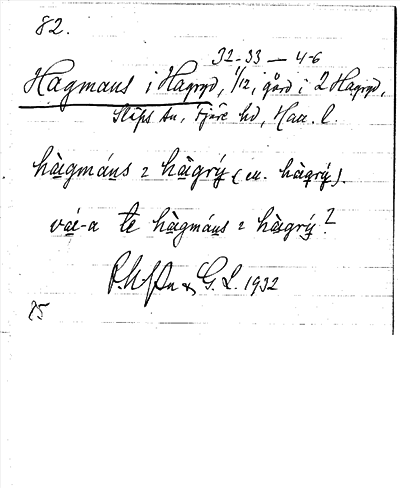 82.
32-33 — 4-6
Hagmans i Hagryd, 1/12, gård i 2 Hagryd,
Släps sn, Fjäre hd, Hall. l.
hàgmáns z hàgrý (el. hàgrý).
vá-a te hàgmáns z hàgrý?
& G. L. 1932
75